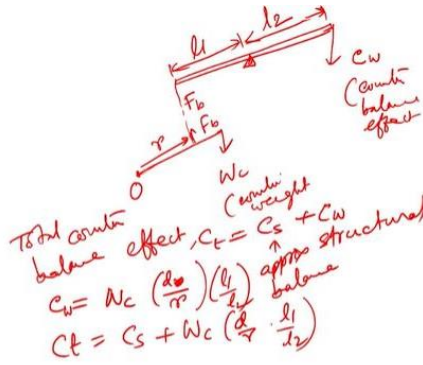 l1 l2
Cw
(counter
balance
effect)
Fb
r Fb
O
Wc
(counter
weight
Total counter
balance effect, Ct = Cs + Cw
↑
approx structural
balance
Cw = Wc (d/r) (l1/l2)
Ct = Cs + Wc (d/r · l1/l2)